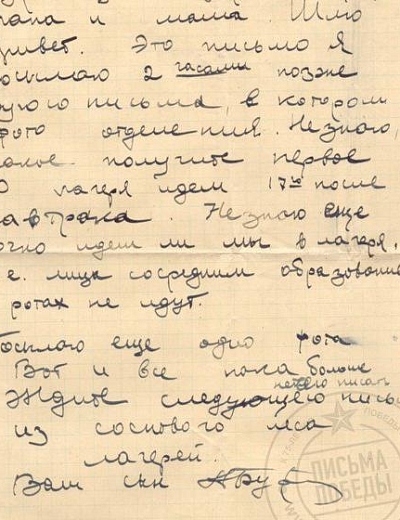 папа и мама. Шлю
ривет. Это письмо я
осылаю 2 часами позже
ругого письма, в котором
фото отделения. Не знаю,
акое получите первое
О лагеря идем 17го после
автрака. Не знаю еще
очно идем ли мы в лагеря,
е. лица со средним образование
ротах не идут.
Посылаю еще одно фото
Вот и все пока больше
нечего писать
Ждите следующего пись
из соснового леса
лагерей.
Ваш сын
ПИСЬМА
ПОБЕДЫ